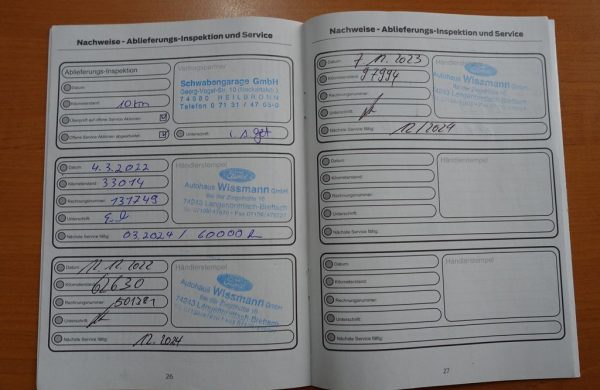 Nachweise - Ablieferungs-Inspektion und Service
Ablieferungs-Inspektion
Datum
Kilometerstand 10 km
Überprüft auf offene Service Aktionen
Offene Service Aktionen abgearbeitet
Vertragspartner
Schwabengarage GmbH
Georg-Vogel-Str. 10 (Neckartalstr.)
74080 HEILBRONN
Telefon 0 71 31 / 47 05-0
Unterschrift
Datum 4.3.2022
Kilometerstand 33014
Rechnungsnummer 131749
Unterschrift
Händlerstempel
Ford
Autohaus Wissmann GmbH
Bei der Ziegelhütte 10
74243 Langenbrettach-Brettach
Nächste Service fällig: 03.2024 / 60000
Datum 12.12.2022
Kilometerstand 62630
Rechnungsnummer
Unterschrift
Händlerstempel
Ford
Autohaus Wissmann GmbH
Bei der Ziegelhütte 10
74243 Langenbrettach-Brettach
Nächste Service fällig: 12.2024
26
Nachweise - Ablieferungs-Inspektion und Service
Datum 7.12.2023
Kilometerstand 97994
Rechnungsnummer
Unterschrift
Händlerstempel
Ford
Autohaus Wissmann GmbH
Bei der Ziegelhütte 10
74243 Langenbrettach-Brettach
Nächste Service fällig: 12/2024
Datum
Kilometerstand
Rechnungsnummer
Unterschrift
Händlerstempel
Nächste Service fällig:
Datum
Kilometerstand
Rechnungsnummer
Unterschrift
Händlerstempel
Nächste Service fällig:
27